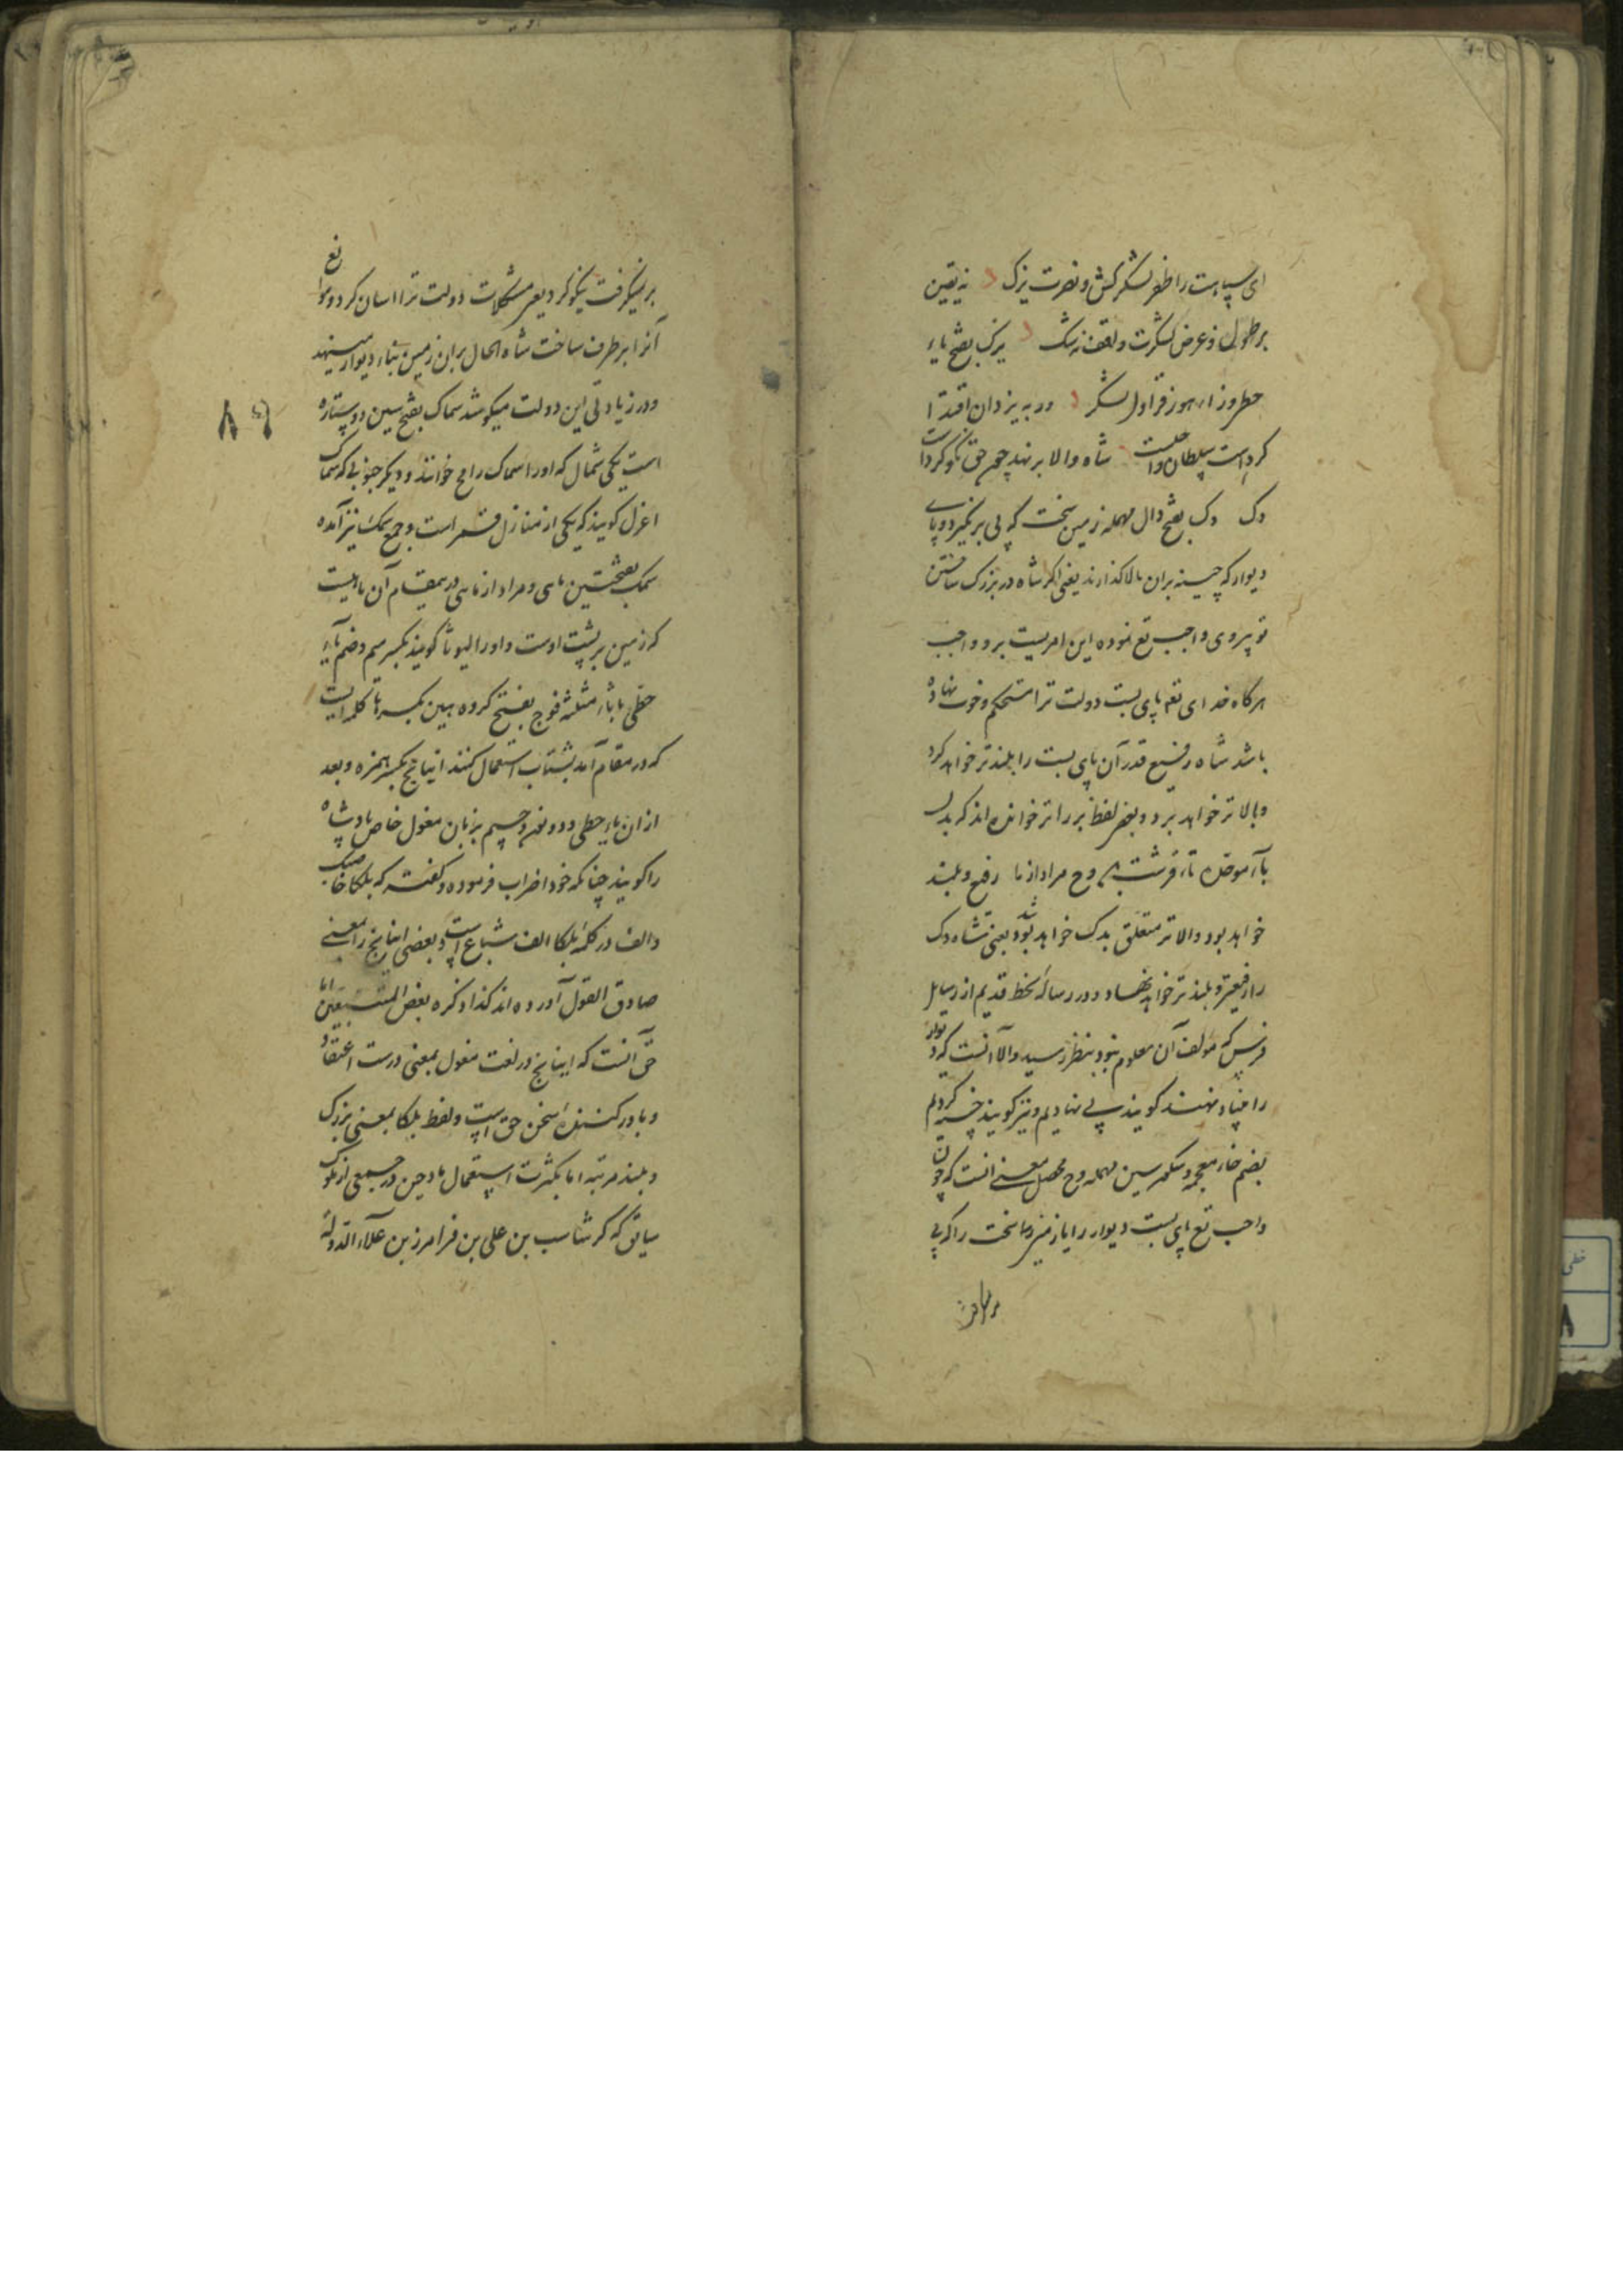 ای سپاهت را ظفر لشکرکش و نصرت یزک نه یقین
بر طول و عرض لشکرت واقف نه شک یزک بفتح یاء
حطی و زاء هوز قراول لشکر ور به یزدان اقتدا
کرد است سلطان واجبست شاه والا بر نهد چون حق نکو کرد است
دک دک بفتح دال مهمله زمین سخت که پی بر نگیرد و پای
دیوار که چینه بران بالا گذارند یعنی اگر شاه در بزرک ساختن
تو پیروی واجب تع نموده این امریست برو واجب
هرکاه خدای تع پای بست دولت ترا مستحکم و خوب نهاده
باشد شاه رفیع قدر آن پای بست را بلندتر خواهد کرد
وبالاتر خواهد برد و بعضی لفظ بر را تر خوانده اند که بدل
باء موحده تاء قرشت وح مراد از رفیع و بلند
خواهد بود والاتر متعلق بدک خواهد بود یعنی شاه دک
را رفیعتر و بلندتر خواهد نهاد و در رساله بخط قدیم از رسایل
فرس که مولف آن معلوم نبود بنظر رسید والا آنست که دیوار
را بنیاد نهند کویند پی نهادیم و نیز کویند کردیم
بضم خاء معجمه و سین مهمله وح محصل معنی انست که چون
واجب تع پای بست دیوار را یا زمین سخت را که پی
بر نیکرفت نیکو کرد یعنی مشکلات دولت ترا اسان کرد و موانع
آنرا برطرف ساخت شاه الحال بران زمین بناء دیوار مینهد
و در زیادتی این دولت میکوشد سماک بفتح سین دو ستاره
است یکی شمالی که اورا سماک رامح خوانند و دیکر جنوبی که سماک
اعزل کویند که یکی از منازل قمر است و جمع سمک نیز آمده
سمک بفتحتین ماهی و مراد از ماهی در یمقام آن ماهیست
که زمین بر پشت اوست و اورا لیوثا کویند بکسر لام و ضم یاء
حطی با ثاء مثلثه فوج بفتح کروه هین بکسر ها کلمه ایست
که در مقام آمد بشتاب استعمال کنند اینانج بکسر همزه و بعد
از ان یاء حطی و دو نون و جیم بزبان مغول خاص پادشاه
را کویند چنانکه خود اضراب فرموده و کفته که بلکا خاصبک
والف در کلمه بلکا الف اشباع است و بعضی اینانج را بمعنی
صادق القول آورده اند کذا ذکره بعض المتتبعین اما
حق آنست که اینانج در لغت مغول بمعنی درست اعتقاد
و باور کننده سخن حق است و لفظ بلکا بمعنی بزرک
و بلند مرتبه اما بکثرت استعمال مادحین در جمعی از ملوک
سابق که کرشاسب بن علی بن فرامرز بن علاء الدوله
بر نیکرفت
۸۹
خطی